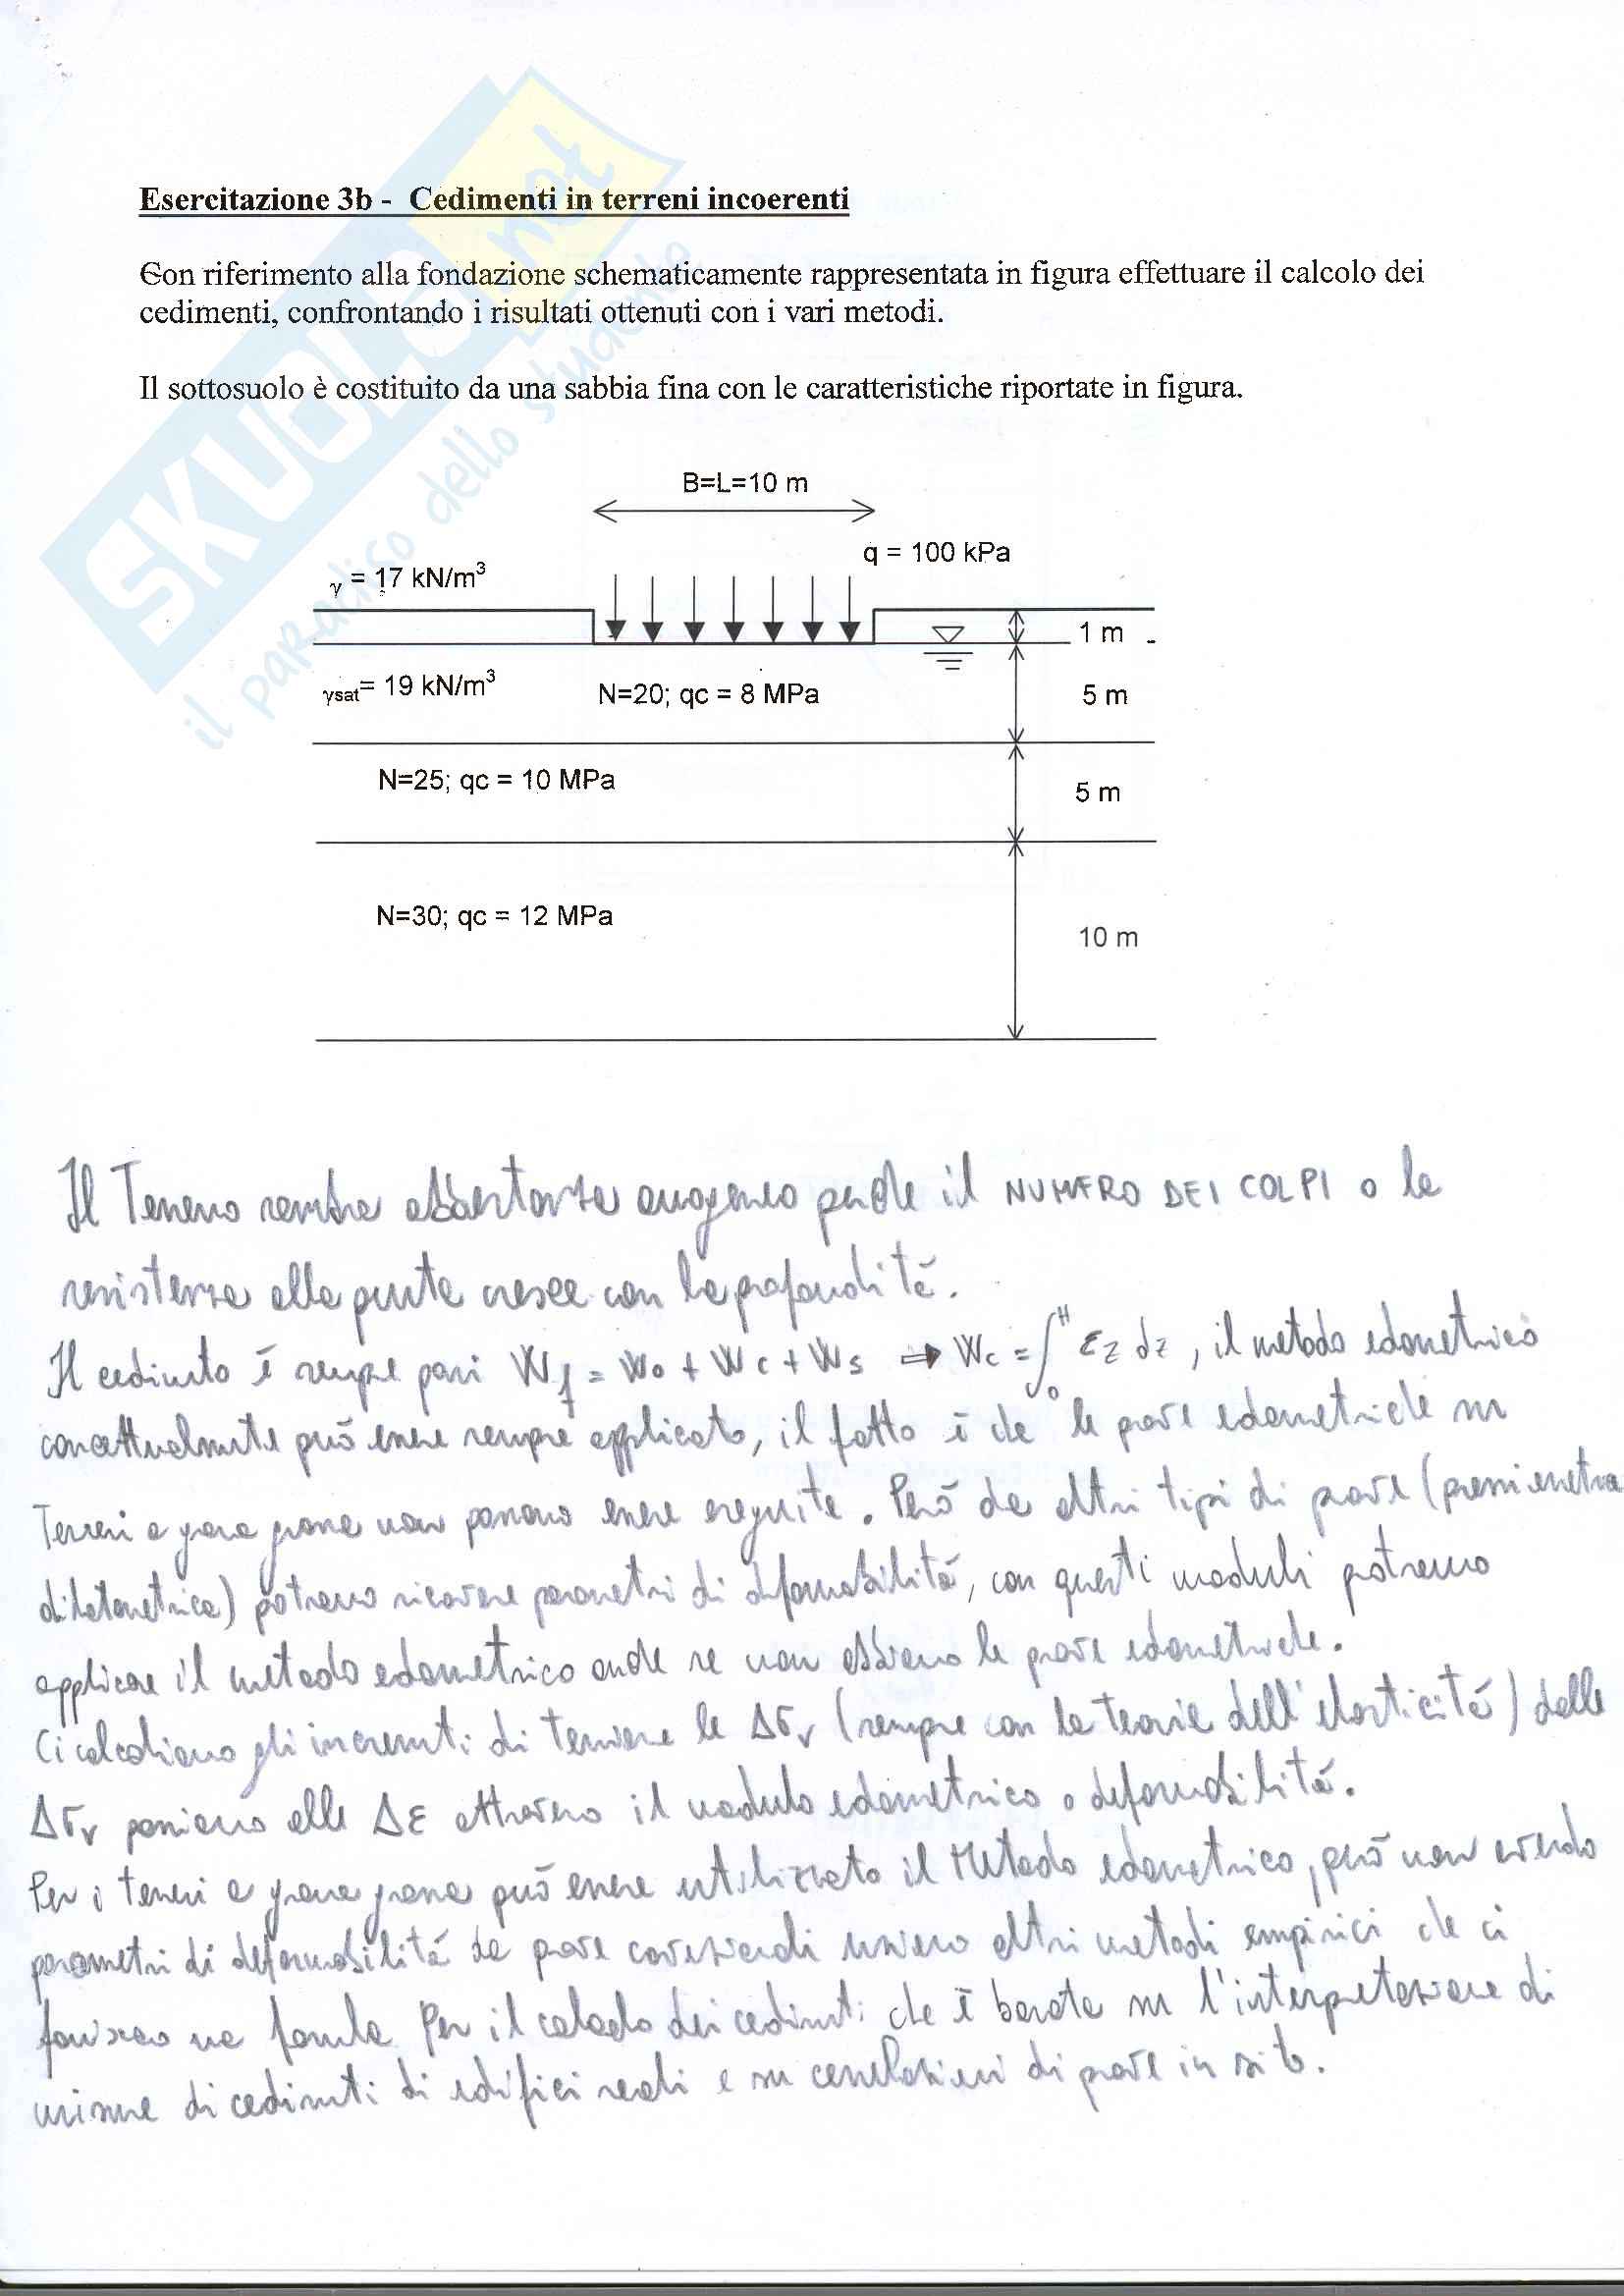 SKUOLA.net
il paradiso dello studente
Esercitazione 3b - Cedimenti in terreni incoerenti
Con riferimento alla fondazione schematicamente rappresentata in figura effettuare il calcolo dei
cedimenti, confrontando i risultati ottenuti con i vari metodi.
Il sottosuolo è costituito da una sabbia fina con le caratteristiche riportate in figura.
B=L=10 m
q = 100 kPa
γ = 17 kN/m³
1 m
γsat= 19 kN/m³
N=20; qc = 8 MPa
5 m
N=25; qc = 10 MPa
5 m
N=30; qc = 12 MPa
10 m
Il Terreno sembra abbastanza omogeneo perché il NUMERO DEI COLPI o la
resistenza alla punta cresce con la profondità.
Il cedimento è sempre pari Wf = Wo + Wc + Ws ⇒ Wc = ∫₀ᴴ εz dz, il metodo edometrico
concettualmente può essere sempre applicato, il fatto è che le prove edometriche su
Terreni a grana grossa non possono essere eseguite. Però da altri tipi di prove (pressiometrica
dilatometrica) potremo ricavare parametri di deformabilità, con questi moduli potremo
applicare il metodo edometrico anche se non abbiamo le prove edometriche.
Ci calcoliamo gli incrementi di tensione le Δσv (sempre con la teoria dell'elasticità) dalle
Δσv passiamo alle Δε attraverso il modulo edometrico o deformabilità.
Per i terreni a grana grossa può essere utilizzato il Metodo edometrico, però non avendo
parametri di deformabilità da prove usiamo altri metodi empirici che ci
forniscono una formula per il calcolo dei cedimenti che è basata su l'interpretazione di
misure di cedimenti di edifici reali e su correlazioni di prove in sito.